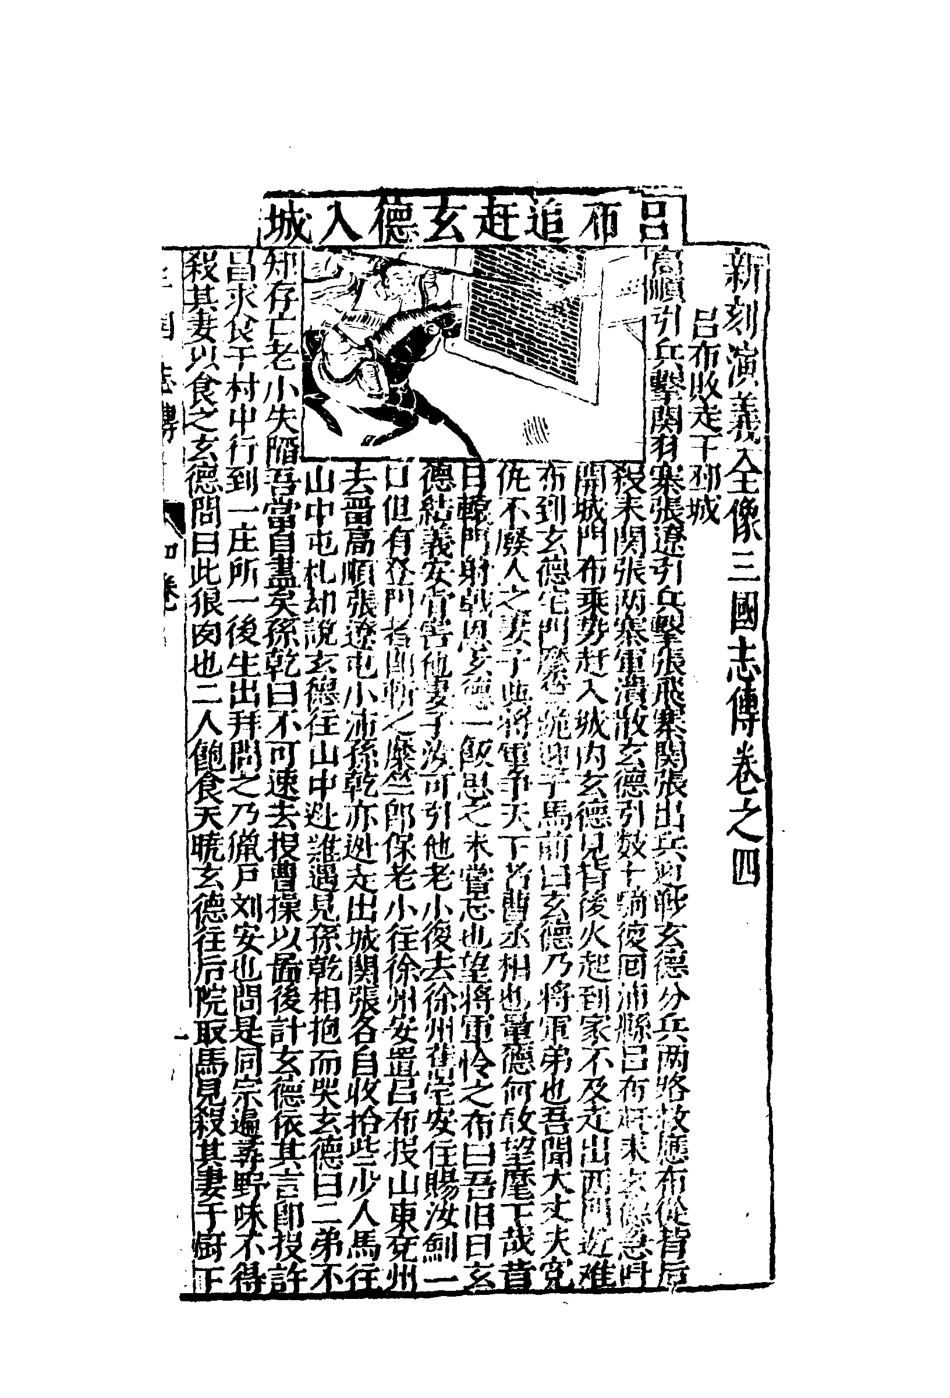 呂布追赶玄德入城
新刻演義全像三國志傳卷之四
呂布敗走下邳城
高順引兵擊関羽寨張遼引兵擊張飛寨関張出兵迎战玄德分兵两路救應布從背后
殺来関張两寨軍潰散玄德引数十騎復回沛縣呂布赶来玄德急叫
開城門布乘势赶入城内玄德見背後火起到家不及走出西門逃难
布到玄德宅門糜竺跪迎于馬前曰玄德乃將軍弟也吾聞大丈夫寃
仇不廢人之妻子與將軍争天下者曹丞相也量德何敢望麾下哉昔
日轅門射戟恩玄德一飯思之未嘗忘也望將軍怜之布曰吾旧日玄
德結義安肯害他妻子汝可引他老小復去徐州舊宅安住賜汝劍一
口但有登門者即斬之糜竺即保老小往徐州安置吕布投山東兗州
去畄高順張遼屯小沛孫乾亦逃走出城関張各自收拾些少人馬往
山中屯札却說玄德往山中逃難遇見孫乾相抱而哭玄德曰二弟不
知存亡老小失陷吾當自盡矣孫乾曰不可速去投曹操以啚後計玄德依其言即投許
昌求食于村中行到一庄所一後生出拜問之乃獵户刘安也問是同宗遍尋野味不得
殺其妻以食之玄德問曰此狼肉也二人飽食天曉玄德往后院取馬見殺其妻于厨下
国志傳 四卷